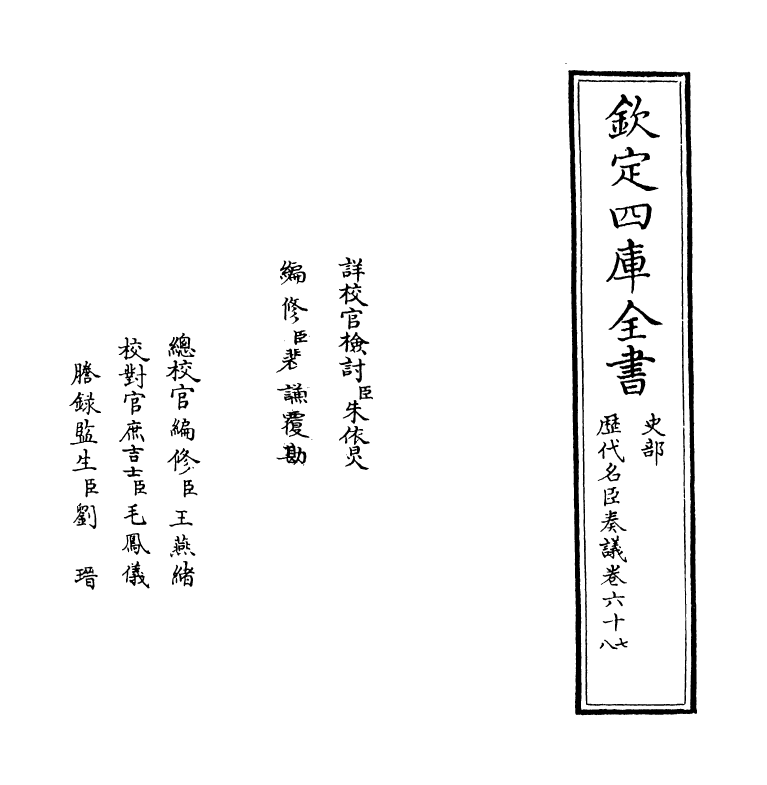 欽定四庫全書
史部
歴代名臣奏議卷六十七八
詳校官檢討臣朱依炅
編修臣裴謙覆勘
總校官編修臣王燕緒
校對官庶吉士臣毛鳳儀
謄録監生臣劉瑨